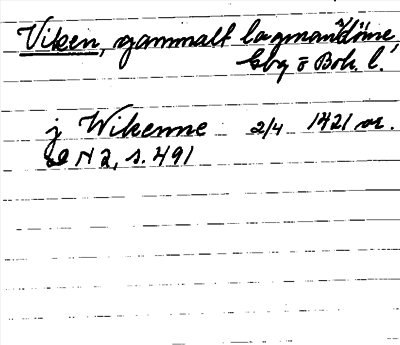 Viken, gammalt lagmansdöme,
Gbg o Boh. l.
j Wikenne 2/4 1421 or.
SD N 2, s. 491